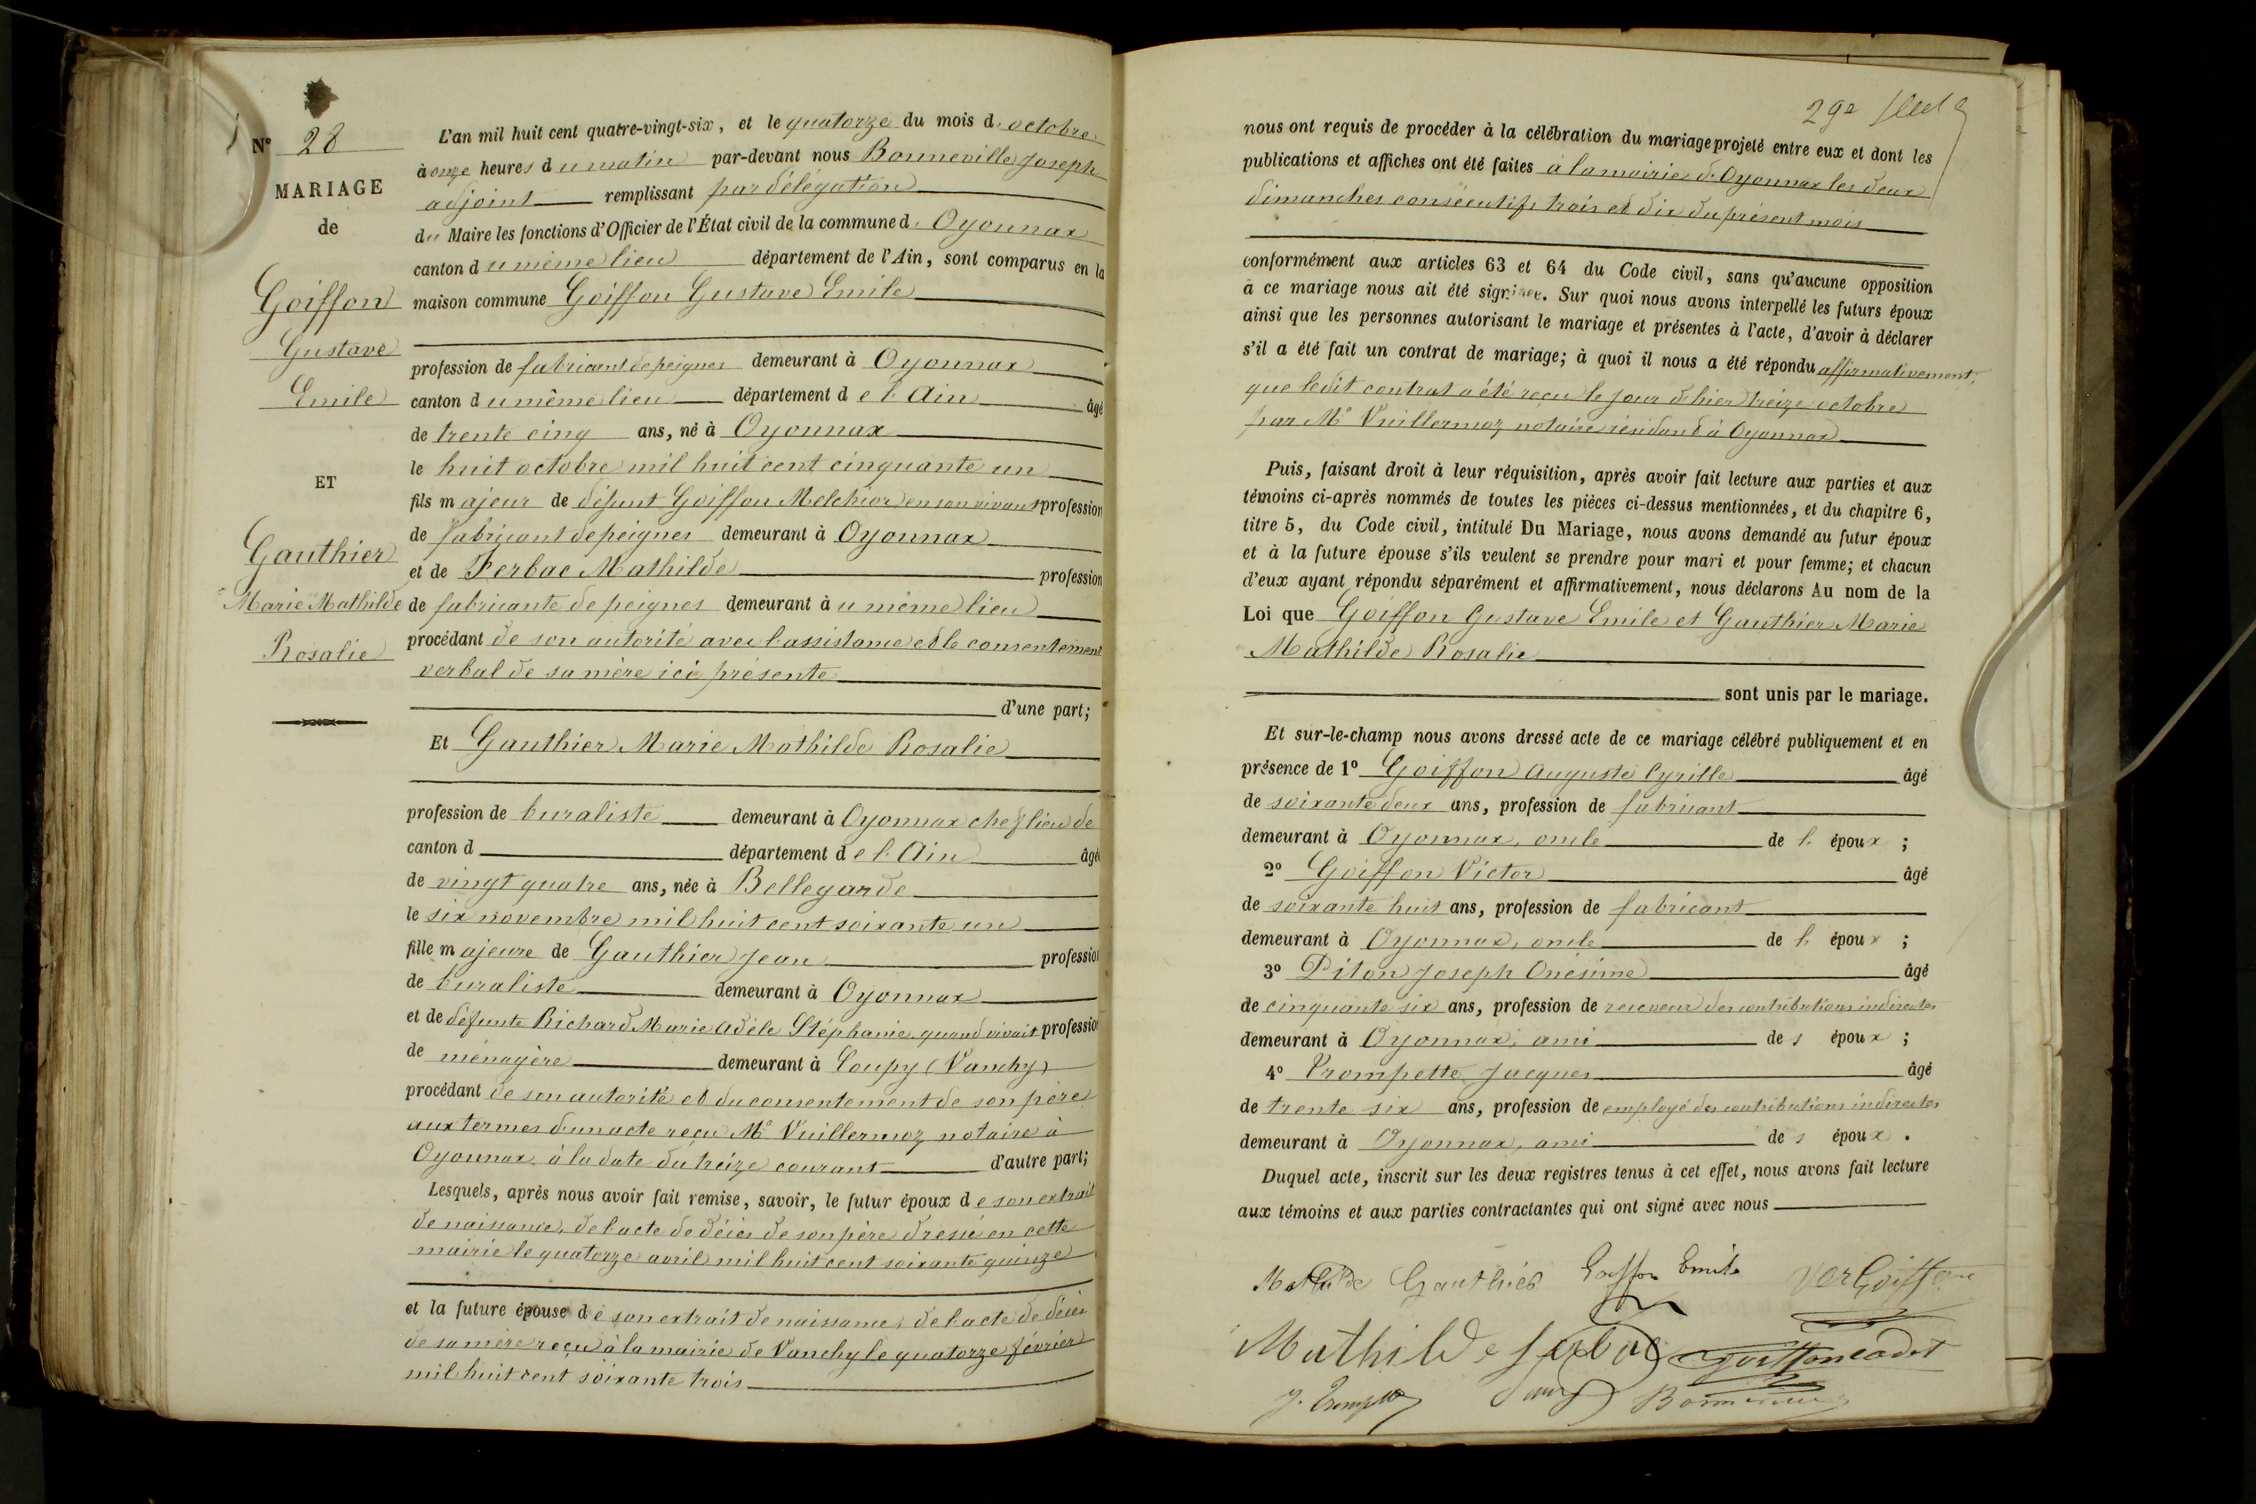 N° 28
MARIAGE
de
Goiffon
Gustave
Emile
ET
Gauthier
Marie Mathilde
Rosalie
L'an mil huit cent quatre-vingt-six, et le quatorze du mois d'octobre
à onze heures du matin par-devant nous Bonneville Joseph
adjoint remplissant par délégation
du Maire les fonctions d'Officier de l'État civil de la commune d'Oyonnax
canton du même lieu département de l'Ain, sont comparus en la
maison commune Goiffon Gustave Emile
profession de fabricant de peignes demeurant à Oyonnax
canton du même lieu département de l'Ain âgé
de trente cinq ans, né à Oyonnax
le huit octobre mil huit cent cinquante un
fils majeur de défunt Goiffon Melchior en son vivant profession
de fabricant de peignes demeurant à Oyonnax
et de Ferbac Mathilde profession
de fabricante de peignes demeurant au même lieu
procédant de son autorité avec l'assistance et le consentement
verbal de sa mère ici présente
d'une part;
Et Gauthier Marie Mathilde Rosalie
profession de buraliste demeurant à Oyonnax chef lieu de
canton d département de l'Ain âgée
de vingt quatre ans, née à Bellegarde
le six novembre mil huit cent soixante un
fille majeure de Gauthier Jean profession
de buraliste demeurant à Oyonnax
et de défunte Richard Marie Adèle Stéphanie quand vivait profession
de ménagère demeurant à Coupy (Vanchy)
procédant de son autorité et du consentement de son père
aux termes d'un acte reçu Me Vuillermoz notaire à
Oyonnax à la date du treize courant d'autre part;
Lesquels, après nous avoir fait remise, savoir, le futur époux de son extrait
de naissance, de l'acte de décès de son père dressé en cette
mairie le quatorze avril mil huit cent soixante quinze
et la future épouse de son extrait de naissance, de l'acte de décès
de sa mère reçu à la mairie de Vanchy le quatorze février
mil huit cent soixante trois
nous ont requis de procéder à la célébration du mariage projeté entre eux et dont les
publications et affiches ont été faites à la mairie d'Oyonnax les deux
dimanches consécutifs trois et dix du présent mois
conformément aux articles 63 et 64 du Code civil, sans qu'aucune opposition
à ce mariage nous ait été signifiée. Sur quoi nous avons interpellé les futurs époux
ainsi que les personnes autorisant le mariage et présentes à l'acte, d'avoir à déclarer
s'il a été fait un contrat de mariage; à quoi il nous a été répondu affirmativement,
que ledit contrat a été reçu le jour d'hier treize octobre
par Me Vuillermoz notaire résidant à Oyonnax
Puis, faisant droit à leur réquisition, après avoir fait lecture aux parties et aux
témoins ci-après nommés de toutes les pièces ci-dessus mentionnées, et du chapitre 6,
titre 5, du Code civil, intitulé Du Mariage, nous avons demandé au futur époux
et à la future épouse s'ils veulent se prendre pour mari et pour femme; et chacun
d'eux ayant répondu séparément et affirmativement, nous déclarons Au nom de la
Loi que Goiffon Gustave Emile et Gauthier Marie
Mathilde Rosalie
sont unis par le mariage.
Et sur-le-champ nous avons dressé acte de ce mariage célébré publiquement et en
présence de 1° Goiffon Auguste Cyrille âgé
de soixante deux ans, profession de fabricant
demeurant à Oyonnax, oncle de l'époux;
2° Goiffon Victor âgé
de soixante huit ans, profession de fabricant
demeurant à Oyonnax, oncle de l'époux;
3° Piton Joseph Onésime âgé
de cinquante six ans, profession de receveur des contributions indirectes
demeurant à Oyonnax, ami des époux;
4° Trompette Jacques âgé
de trente six ans, profession de employé des contributions indirectes
demeurant à Oyonnax, ami des époux.
Duquel acte, inscrit sur les deux registres tenus à cet effet, nous avons fait lecture
aux témoins et aux parties contractantes qui ont signé avec nous
Mathilde Gauthier Goiffon Emile Vor Goiffon
Mathilde Ferbac Goiffon cadet
J. Trompette Bonneville